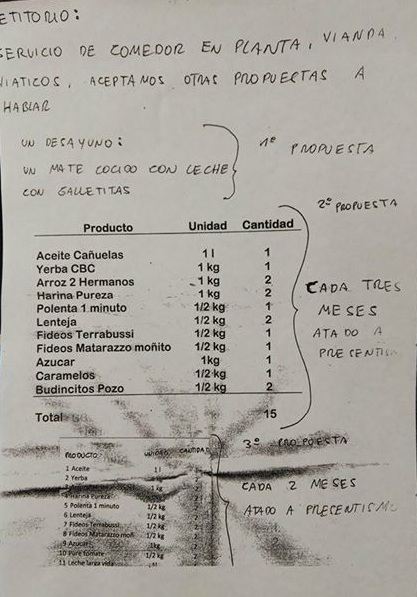 ETITORIO:
SERVICIO DE COMEDOR EN PLANTA, VIANDA
VIATICOS, ACEPTAMOS OTRAS PROPUESTAS A
HABLAR
UN DESAYUNO:
UN MATE COCIDO CON LECHE
CON GALLETITAS
1º PROPUESTA
2º PROPUESTA
Producto Unidad Cantidad
Aceite Cañuelas 1 l 1
Yerba CBC 1 kg 1
Arroz 2 Hermanos 1 kg 2
Harina Pureza 1 kg 2
Polenta 1 minuto 1/2 kg 1
Lenteja 1/2 kg 2
Fideos Terrabussi 1/2 kg 1
Fideos Matarazzo moñito 1/2 kg 1
Azucar 1kg 1
Caramelos 1/2 kg 1
Budincitos Pozo 1/2 kg 2
Total 15
CADA TRES
MESES
ATADO A
PRESENTIS
3º PROPUESTA
PRODUCTO UNIDAD CANTIDAD
1 Aceite 1 l
2 Yerba
1 kg
4 Harina Pureza
5 Polenta 1 minuto 1/2 kg
6 Lenteja 1/2 kg
7 Fideos Terrabussi 1/2 kg
8 Fideos Matarazzo moñ 1/2 kg
9 Azucar 1kg
10 Pure tomate 1/2 kg
11 Leche larga vida
CADA 2 MESES
ATADO A PRESENTISMO